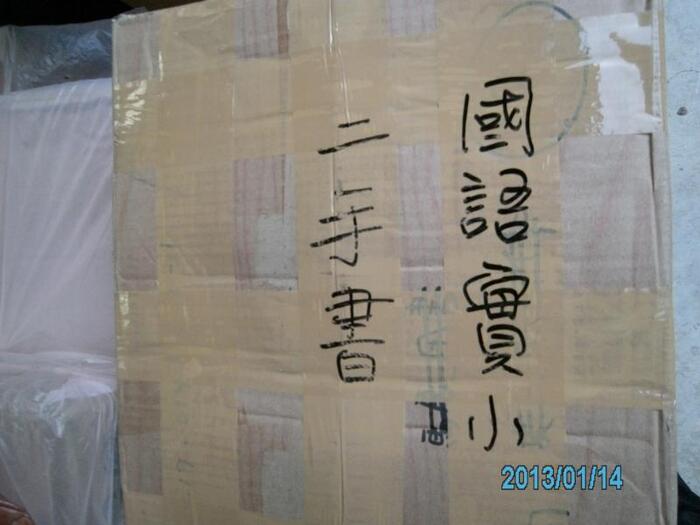 國語實小
二手書
2013/01/14